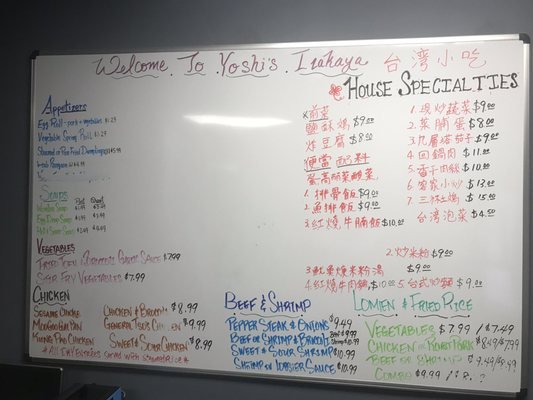 Welcome To Yoshi's Izakaya 台湾小吃
HOUSE SPECIALTIES
Appetizers
Egg Roll - pork & vegetables $1.29
Vegetable Spring Roll $1.29
Steamed or Pan Fried Dumplings $5.99
Crab Rangoon
Soups
Wonton Soup
Egg Drop Soup
Hot & Sour Soup
VEGETABLES
FRIED TOFU & BROCCOLI GARLIC SAUCE $7.99
STIR FRY VEGETABLES $7.99
CHICKEN
SESAME CHICKEN
MOO GOO GAI PAN
KUNG PAO CHICKEN
CHICKEN & BROCCOLI $8.99
GENERAL TSO'S CHICKEN $9.99
SWEET & SOUR CHICKEN $8.99
* ALL DAY ENTREES served with steamed rice *
BEEF & SHRIMP
PEPPER STEAK & ONIONS $9.49
BEEF OR SHRIMP & BROCCOLI
SWEET & SOUR SHRIMP $10.99
SHRIMP W LOBSTER SAUCE $10.99
LOMIEN & FRIED RICE
VEGETABLES $7.99 / $7.49
CHICKEN OR ROAST PORK $8.49/$7.99
BEEF OR SHRIMP $9.49/$8.99
COMBO $9.99
鹽酥鷄 $9.00
炸豆腐 $8.00
便當
1. 排骨飯 $9.00
2. 魚排飯 $9.00
3. 紅燒牛腩飯 $10.00
1. 現炒蔬菜 $9.00
2. 菜脯蛋 $8.00
3. 九層塔茄子 $9.00
4. 回鍋肉 $11.00
5. 香干肉絲 $10.00
6. 客家小炒 $13.00
7. 三杯土鷄 $15.00
台灣泡菜 $4.50
2. 炒米粉 $9.00
$9.00
4. 紅燒牛肉麵 $10.00
5. 台式炒麵 $9.00